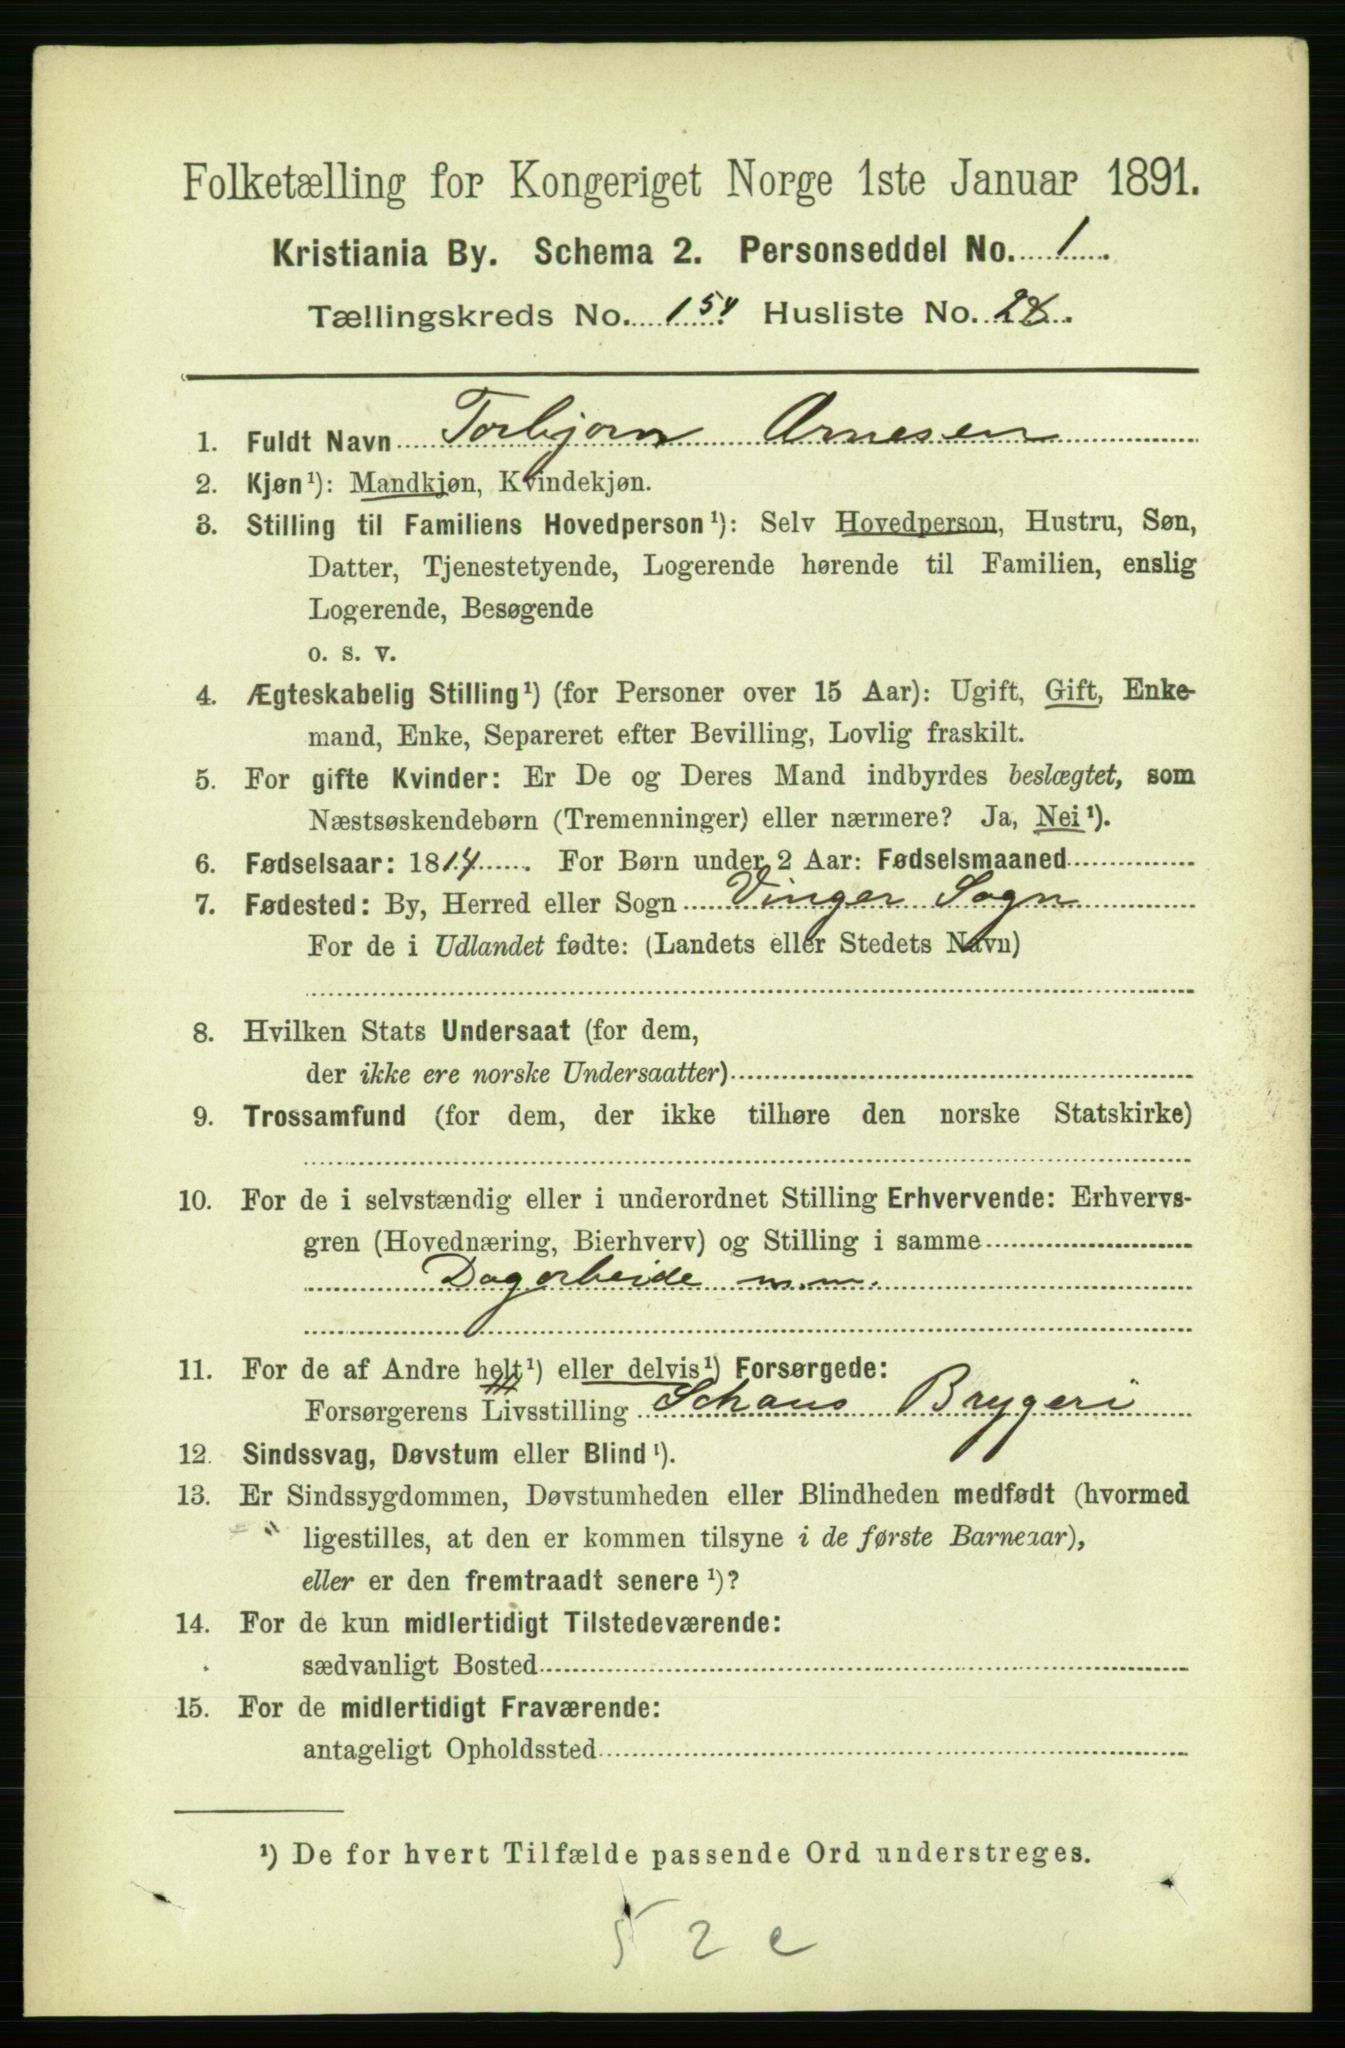 Folketælling for Kongeriget Norge 1ste Januar 1891.
Kristiania By. Schema 2. Personseddel No. 1.
Tællingskreds No. 154 Husliste No. 28.
1. Fuldt Navn Torbjørn Arnesen
2. Kjøn¹): Mandkjøn, Kvindekjøn.
3. Stilling til Familiens Hovedperson¹): Selv Hovedperson, Hustru, Søn,
Datter, Tjenestetyende, Logerende hørende til Familien, enslig
Logerende, Besøgende
o. s. v.
4. Ægteskabelig Stilling¹) (for Personer over 15 Aar): Ugift, Gift, Enke-
mand, Enke, Separeret efter Bevilling, Lovlig fraskilt.
5. For gifte Kvinder: Er De og Deres Mand indbyrdes beslægtet, som
Næstsøskendebørn (Tremenninger) eller nærmere? Ja, Nei¹).
6. Fødselsaar: 1814. For Børn under 2 Aar: Fødselsmaaned
7. Fødested: By, Herred eller Sogn Vinger Sogn
For de i Udlandet fødte: (Landets eller Stedets Navn)
8. Hvilken Stats Undersaat (for dem,
der ikke ere norske Undersaatter)
9. Trossamfund (for dem, der ikke tilhøre den norske Statskirke)
10. For de i selvstændig eller i underordnet Stilling Erhvervende: Erhvervs-
gren (Hovednæring, Bierhverv) og Stilling i samme
Dagarbeide m.m.
11. For de af Andre helt¹) eller delvis¹) Forsørgede:
Forsørgerens Livsstilling Schous Brygeri
12. Sindssvag, Døvstum eller Blind¹).
13. Er Sindssygdommen, Døvstumheden eller Blindheden medfødt (hvormed
ligestilles, at den er kommen tilsyne i de første Barneaar),
eller er den fremtraadt senere¹)?
14. For de kun midlertidigt Tilstedeværende:
sædvanligt Bosted
15. For de midlertidigt Fraværende:
antageligt Opholdssted
¹) De for hvert Tilfælde passende Ord understreges.
5 2 e